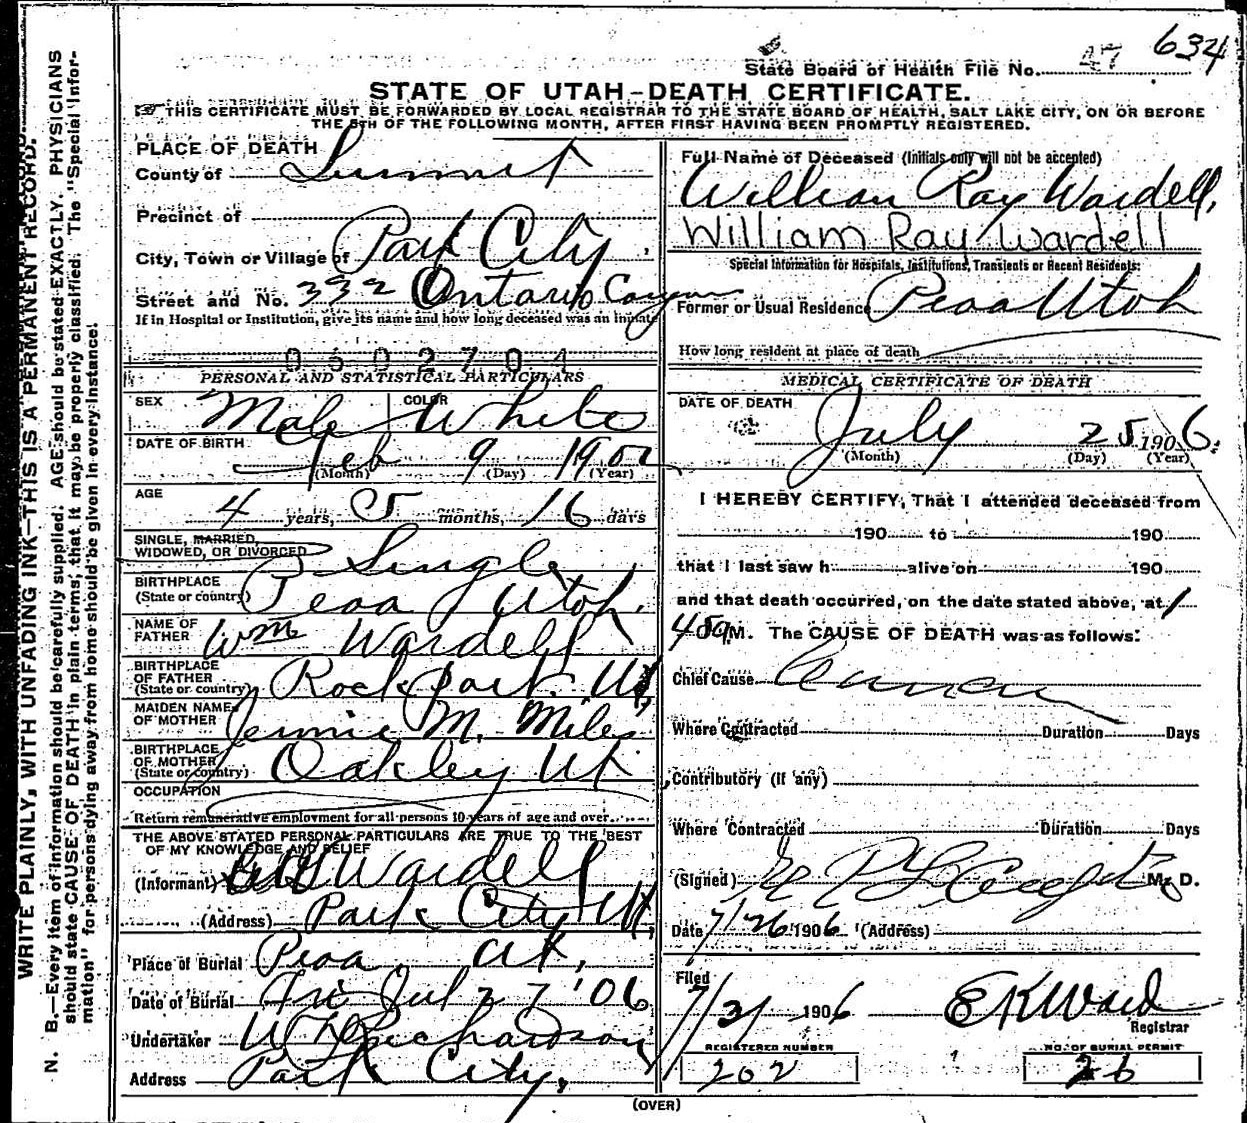 634
State Board of Health File No. 47
STATE OF UTAH-DEATH CERTIFICATE.
THIS CERTIFICATE MUST BE FORWARDED BY LOCAL REGISTRAR TO THE STATE BOARD OF HEALTH, SALT LAKE CITY, ON OR BEFORE
THE 5TH OF THE FOLLOWING MONTH, AFTER FIRST HAVING BEEN PROMPTLY REGISTERED.
WRITE PLAINLY, WITH UNFADING INK—THIS IS A PERMANENT RECORD.
N. B.—Every item of information should be carefully supplied. AGE should be stated EXACTLY. PHYSICIANS
should state CAUSE OF DEATH in plain terms, that it may be properly classified. The "Special Infor-
mation" for persons dying away from home should be given in every instance.
PLACE OF DEATH
County of Summit
Precinct of
City, Town or Village of Park City
Street and No. 332 Ontario Canyon
If in Hospital or Institution, give its name and how long deceased was an inmate
0502701
PERSONAL AND STATISTICAL PARTICULARS
SEX Male COLOR White
DATE OF BIRTH Feb 9 1902
(Month) (Day) (Year)
AGE
4 years, 5 months, 16 days
SINGLE, MARRIED,
WIDOWED, OR DIVORCED Single
BIRTHPLACE
(State or country) Peoa Utah.
NAME OF
FATHER Wm Wardell
BIRTHPLACE
OF FATHER
(State or country) Rockport Ut,
MAIDEN NAME
OF MOTHER Jennie M. Miles
BIRTHPLACE
OF MOTHER
(State or country) Oakley Ut
OCCUPATION
Return remunerative employment for all persons 10 years of age and over
THE ABOVE STATED PERSONAL PARTICULARS ARE TRUE TO THE BEST
OF MY KNOWLEDGE AND BELIEF
(Informant) Wardell
(Address) Park City Ut,
Place of Burial Peoa Ut,
Date of Burial Fri Jul 27 '06
Undertaker W Richardson
Address Park City,
Full Name of Deceased (Initials only will not be accepted)
William Ray Wardell,
William Ray Wardell
Special Information for Hospitals, Institutions, Transients or Recent Residents:
Former or Usual Residence Peoa Utah
How long resident at place of death
MEDICAL CERTIFICATE OF DEATH
DATE OF DEATH
July 25 1906.
(Month) (Day) (Year)
I HEREBY CERTIFY, That I attended deceased from
190 to 190
that I last saw h alive on 190
and that death occurred, on the date stated above, at 1
40 a M. The CAUSE OF DEATH was as follows:
Chief Cause
Where Contracted Duration Days
Contributory (if any)
Where Contracted Duration Days
(Signed) M. D.
Date 7/26 1906 (Address)
Filed
7/31 1906 E K Ward
Registrar
REGISTERED NUMBER
202
NO. OF BURIAL PERMIT
26
(OVER)